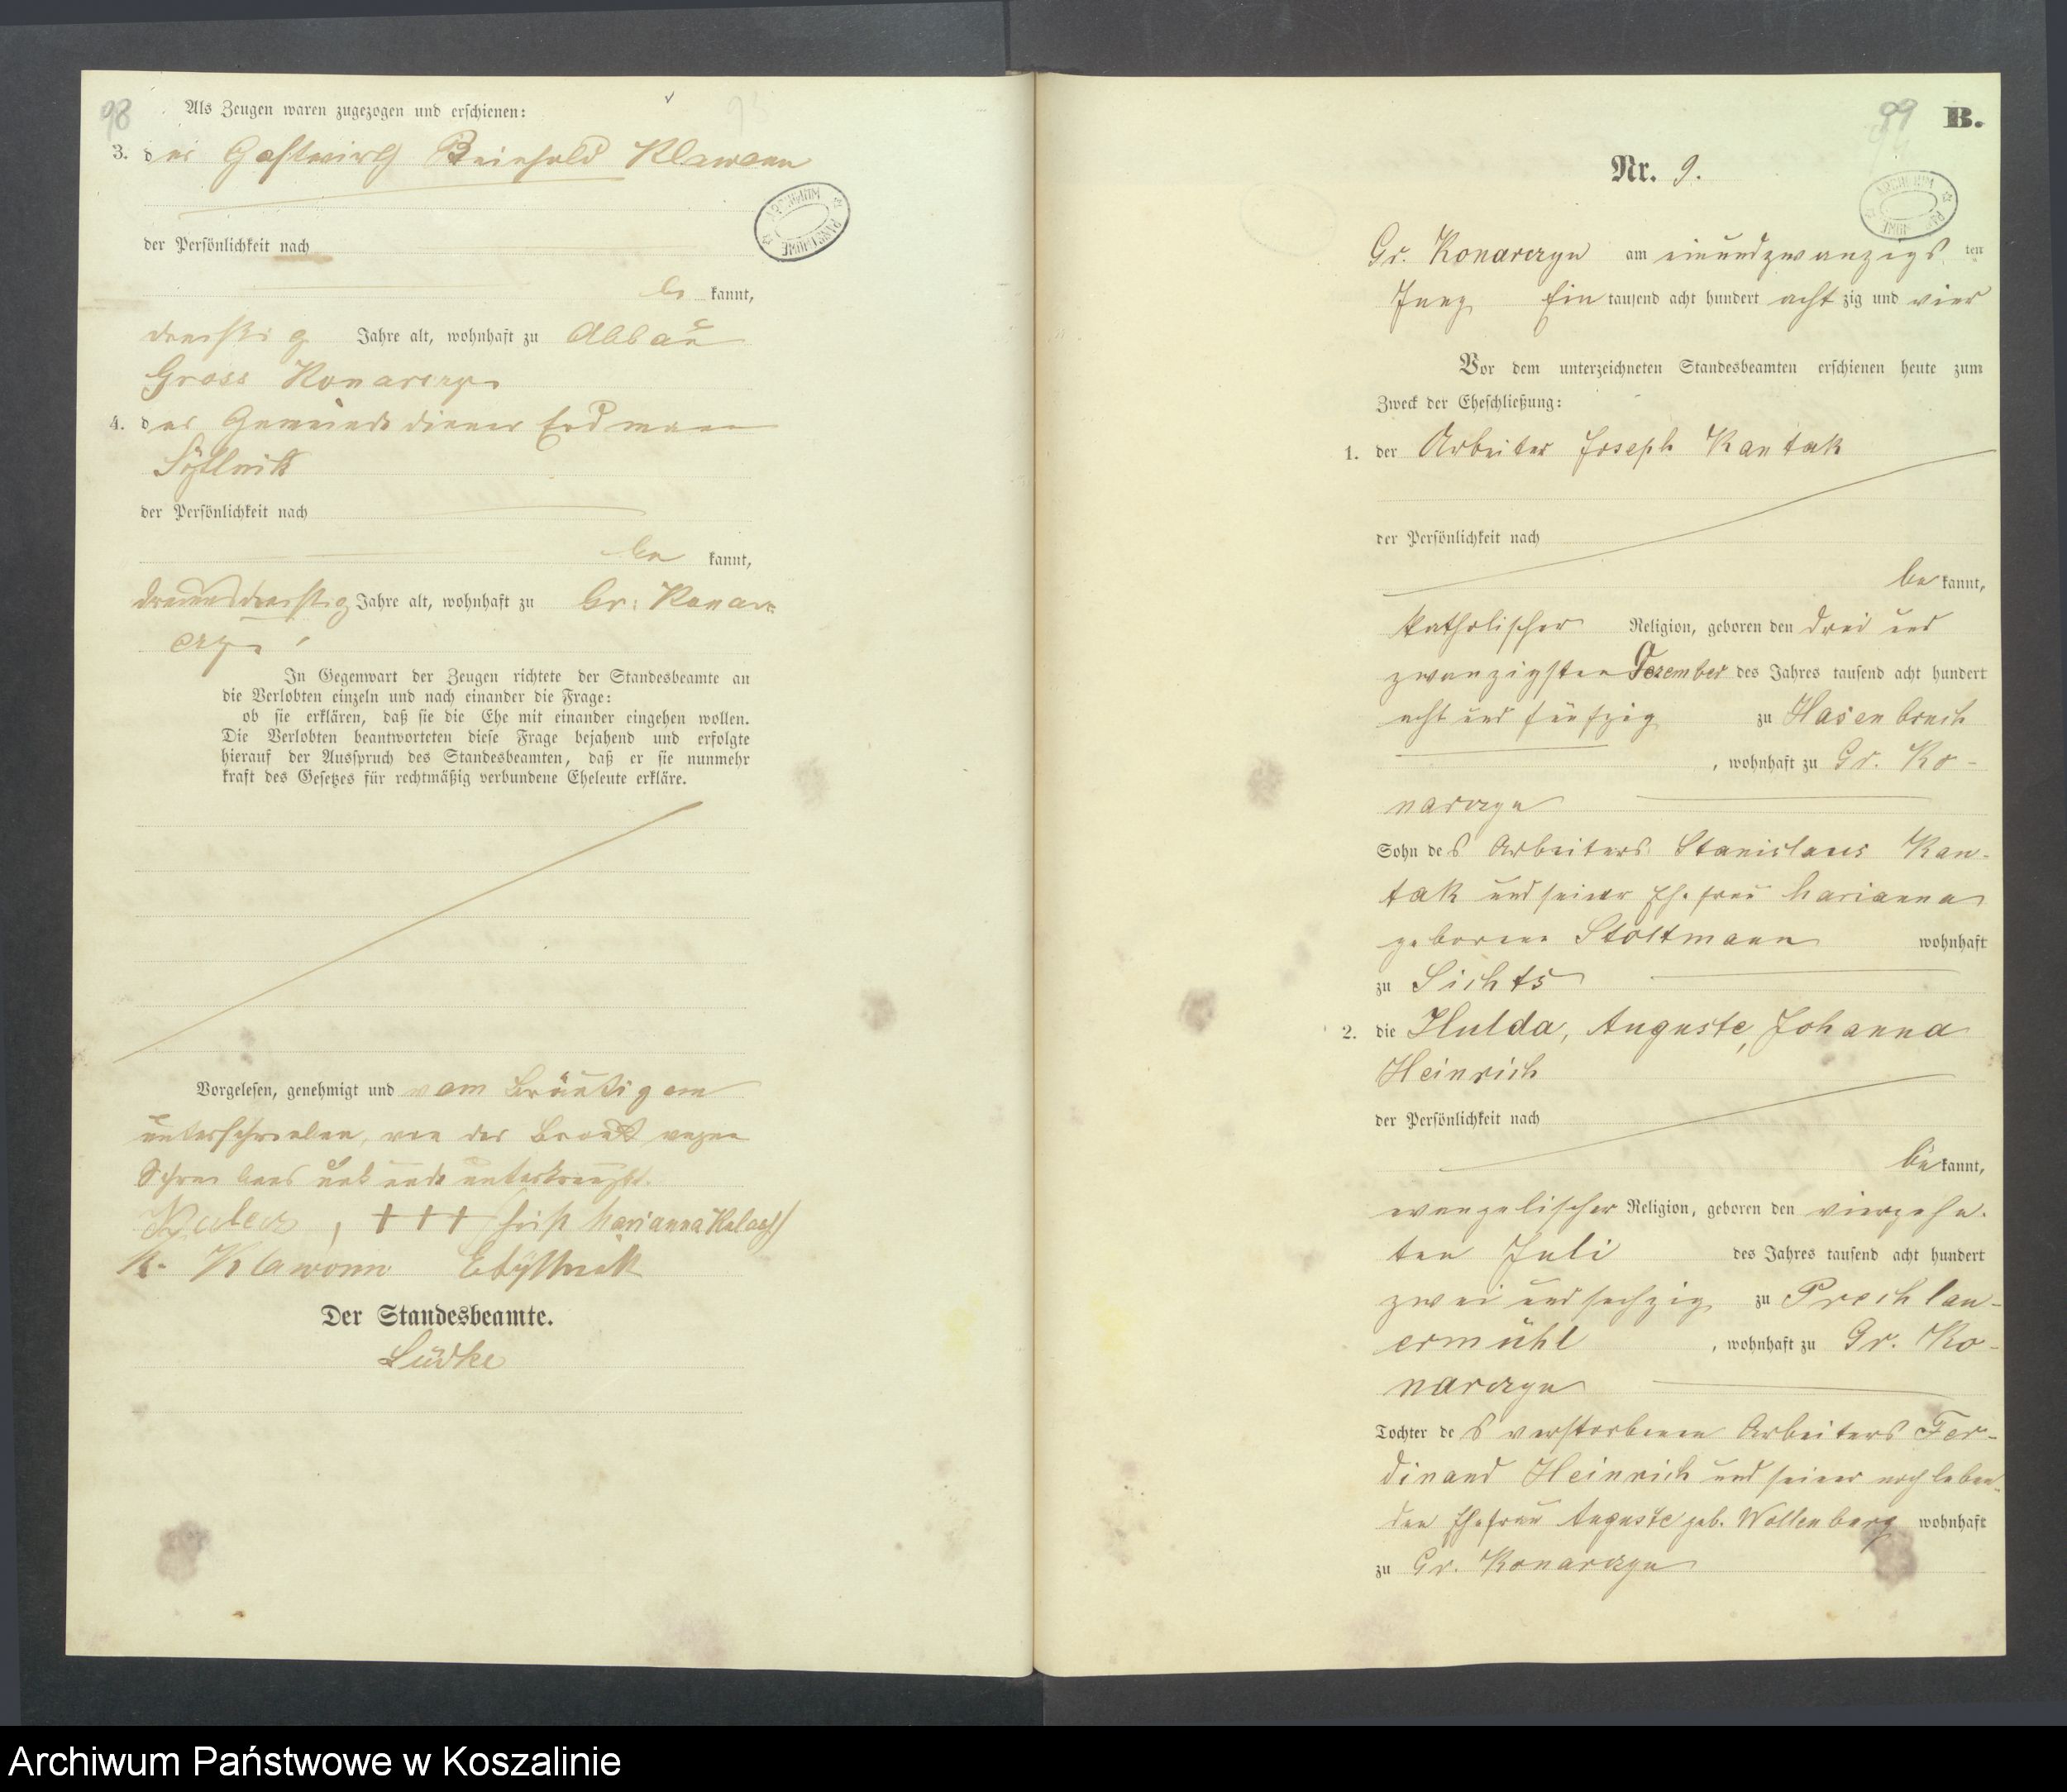 98
Als Zeugen waren zugezogen und erschienen:
3. der Gastwirth Reinhold Klawonn
ARCHIWUM PAŃSTWOWE
der Persönlichkeit nach
be kannt,
dreißig Jahre alt, wohnhaft zu Abbau
Gross Konarczyn
4. der Gemeindediener Erdmann
der Persönlichkeit nach
be kannt,
dreiunddreißig Jahre alt, wohnhaft zu Gr. Konar-
czyn
In Gegenwart der Zeugen richtete der Standesbeamte an
die Verlobten einzeln und nach einander die Frage:
ob sie erklären, daß sie die Ehe mit einander eingehen wollen.
Die Verlobten beantworteten diese Frage bejahend und erfolgte
hierauf der Ausspruch des Standesbeamten, daß er sie nunmehr
kraft des Gesetzes für rechtmäßig verbundene Eheleute erkläre.
Vorgelesen, genehmigt und vom Bräutigam
unterschrieben, von der Braut wegen
Schreibensunkunde unterkreuzt.
, +++ Marianna
R. Klawonn
Der Standesbeamte.
Lüdke
99 B.
Nr. 9.
ARCHIWUM PAŃSTWOWE
Gr. Konarczyn am einundzwanzigs ten
Ein tausend acht hundert acht zig und vier
Vor dem unterzeichneten Standesbeamten erschienen heute zum
Zweck der Eheschließung:
1. der Arbeiter Joseph Kantak
der Persönlichkeit nach
be kannt,
katholischer Religion, geboren den drei und
zwanzigsten Dezember des Jahres tausend acht hundert
acht und fünfzig zu Hasenbruch
, wohnhaft zu Gr. Ko-
narczyn
Sohn des Arbeiters Stanislaus Kan-
tak und seiner Ehefrau Marianna
geborene Stoltmann wohnhaft
zu Lichts
2. die Hulda, Auguste, Johanna
Heinrich
der Persönlichkeit nach
be kannt,
evangelischer Religion, geboren den vierzehn-
ten Juli des Jahres tausend acht hundert
zwei und sechzig zu Prechlau-
ermühl , wohnhaft zu Gr. Ko-
narczyn
Tochter des verstorbenen Arbeiters Fer-
dinand Heinrich und seiner noch leben-
den Ehefrau Auguste geb. Wollenberg wohnhaft
zu Gr. Konarczyn
Archiwum Państwowe w Koszalinie